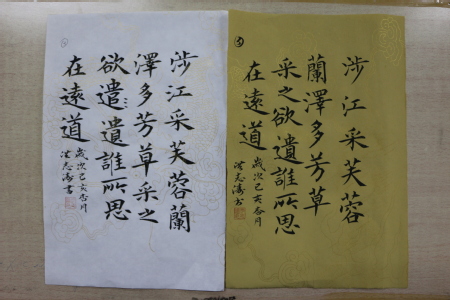 涉江采芙蓉蘭
澤多芳草采之
欲遣遺誰所思
在遠道
歲次己亥杏月
洪志濤書
涉江采芙蓉
蘭澤多芳草
采之欲遺誰所思
在遠道
歲次己亥杏月
洪志濤書